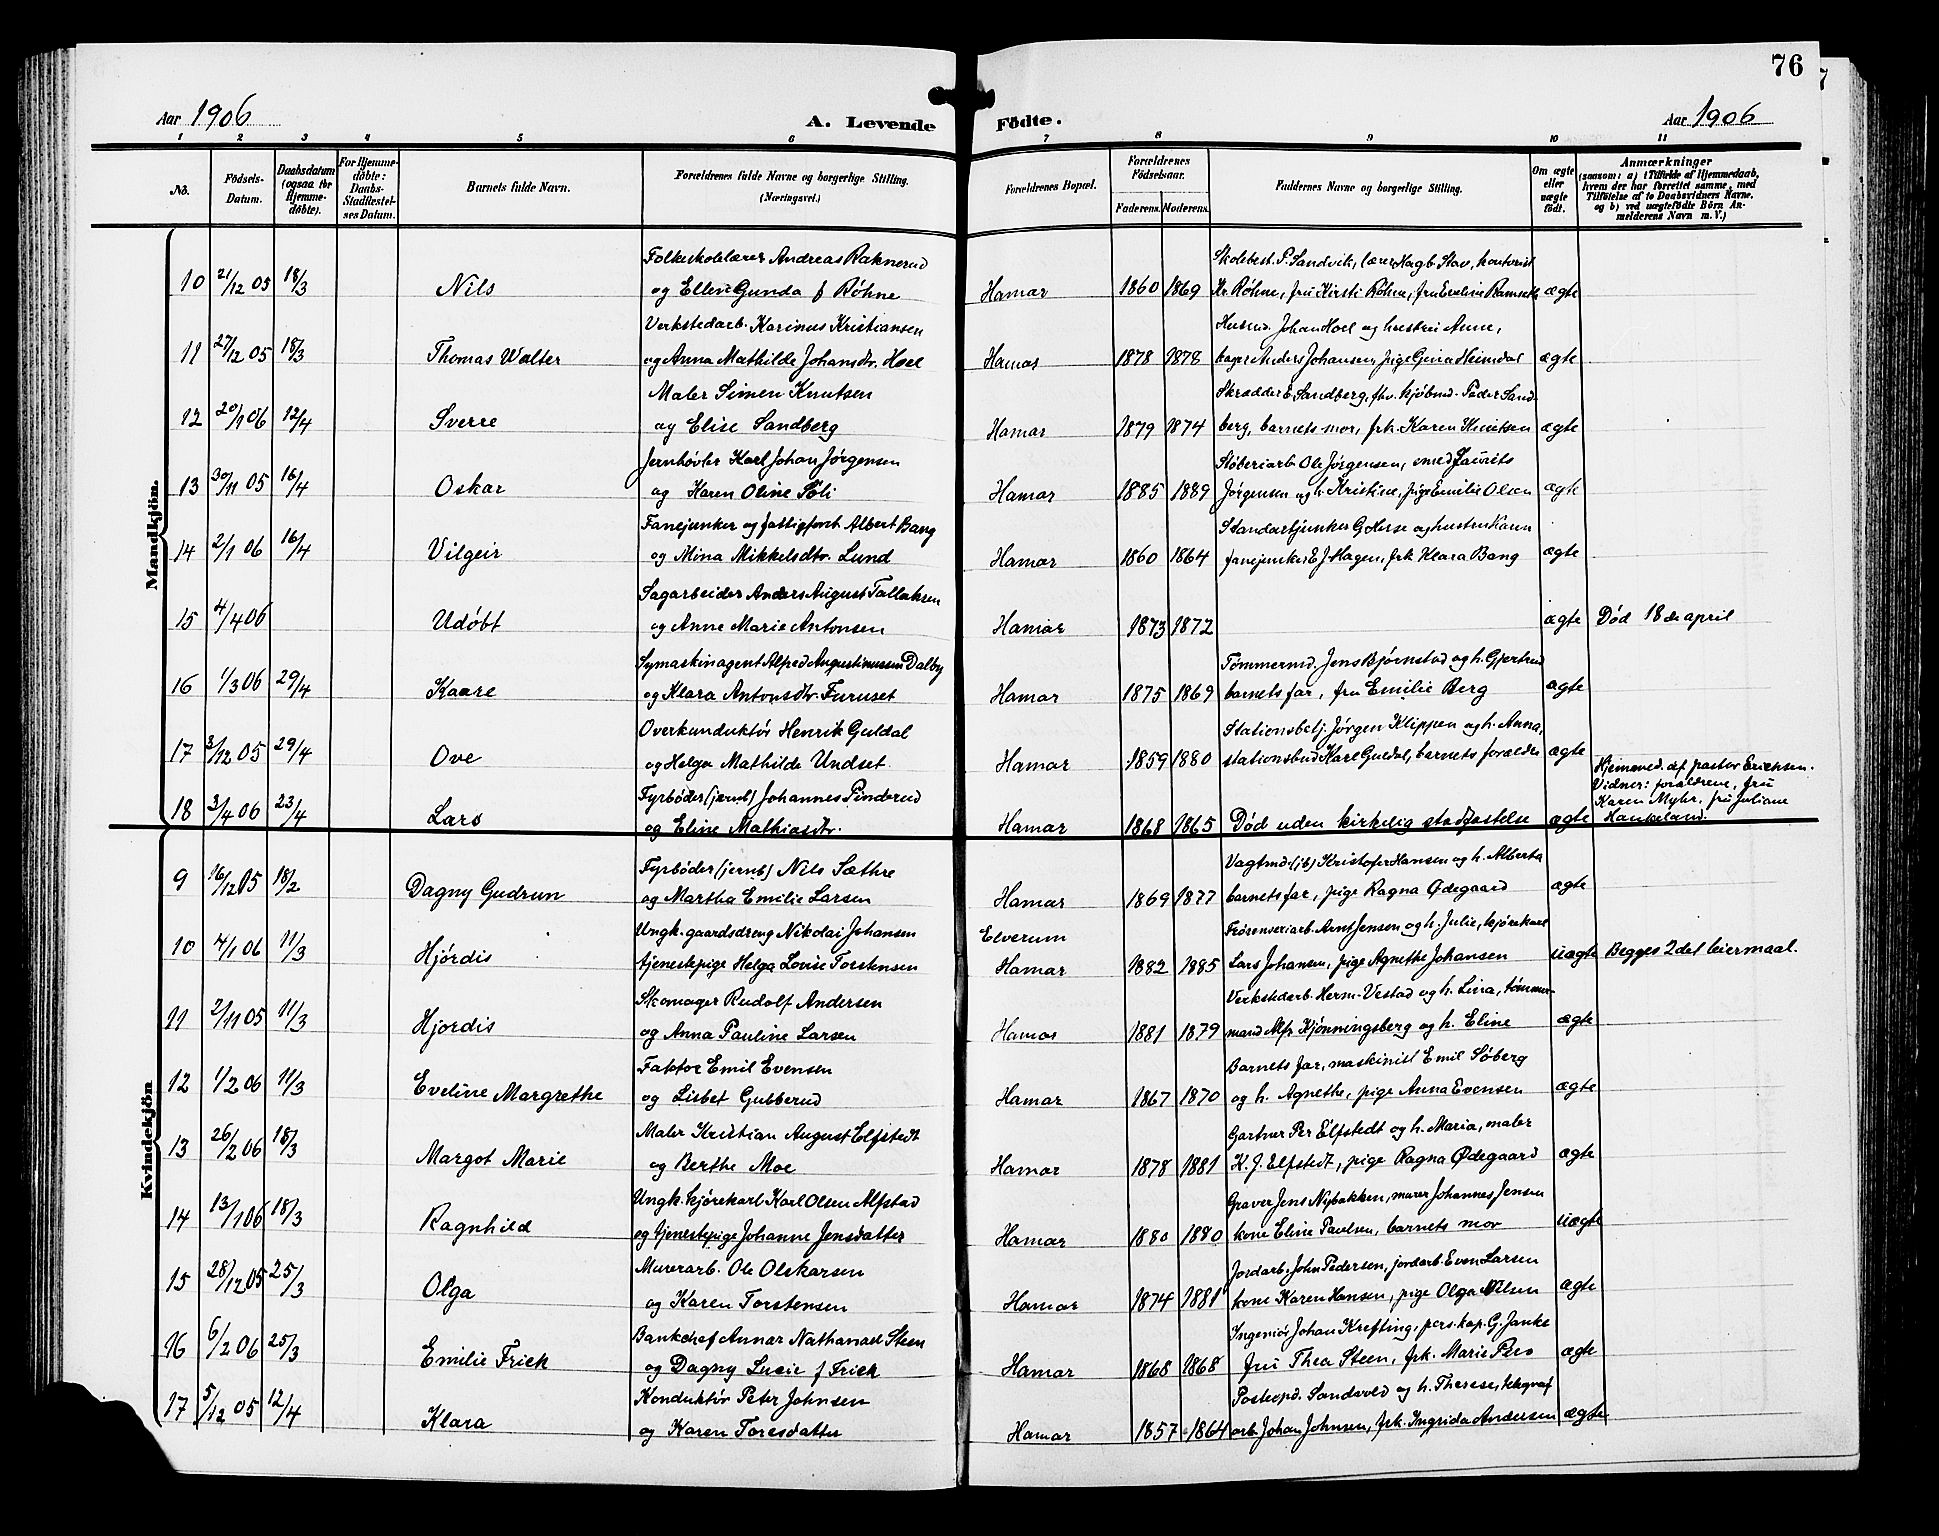 76
Aar 1906
A. Levende Födte.
Aar 1906
1 2 3 4 5 6 7 8 9 10 11
No.
Födsels-Datum.
Daabsdatum (ogsaa for Hjemmedöbte).
For Hjemmedöbte: Daabs-Stadfæstelses Datum.
Barnets fulde Navn.
Forældrenes fulde Navne og borgerlige Stilling. (Næringsvei.)
Forældrenes Bopæl.
Forældrenes Födselsaar.
Faderens. Moderens.
Faddernes Navne og borgerlige Stilling.
Om ægte eller uægte födt.
Anmærkninger
(saasom: a) i Tilfælde af Hjemmedaab, hvem der har forrettet samme, med Tilföielse af to Daabsvidners Navne, og b) ved uægtefödte Börn Anmelderens Navn m. V.)
Mandkjön.
Folkeskolelærer Andreas Raknerud
Skolebest. P. Sandvik, lærer Hagb. Stav, kontorist
10 21/12 05 18/3 Nils og Ellen Gunda f Röhne Hamar 1860 1869 Kr. Röhne, fru Kirsti Röhne, fru Eveline Ramseth ægte
Verkstedarb. Karinus Kristiansen
Husmd. Johan Hoel og hustru Anne,
11 27/12 05 18/3 Thomas Walter og Anna Mathilde Johansdtr. Hoel Hamar 1878 1878 bager Anders Johansen, pige Gina Heimdal ægte
Maler Simen Knutsen
Skrædder E Sandberg, fhv. kjöbmd. Peder Sand-
12 20/1 06 12/4 Sverre og Elise Sandberg Hamar 1879 1874 berg, barnets mor, frk. Karen Knutsen ægte
Jernhövler Karl Johan Jörgensen
Stöberiarb. Ole Jörgensen, smed Laurits
13 30/11 05 16/4 Oskar og Karen Oline Söli Hamar 1885 1889 Jörgensen og h. Kristine, pige Emilie Olsen ægte
Fanejunker og fattigforst. Albert Bang
Standartjunker G Herse og hustru Karen
14 2/1 06 16/4 Vilgeir og Mina Mikkelsdtr. Lund Hamar 1860 1864 fanejunker E J Hagen, frk Klara Bang ægte
Sagarbeider Anders August Tallaksen
15 4/4 06 Udöbt og Anne Marie Antonsen Hamar 1873 1872 ægte Död 18de april
Symaskinagent Alfred Augustinussen Dalby
Tömmermd. Jens Björnstad og h. Gjertrud
16 1/3 06 29/4 Kaare og Klara Antonsdtr. Furuset Hamar 1875 1869 barnets far, fru Emilie Berg ægte
Overkunduktör Henrik Guldal
Stationsbetj. Jörgen Klippen og h. Anna,
17 3/12 05 29/4 Ove og Helga Mathilde Undset Hamar 1859 1880 stationsbud Karl Guldal, barnets forældre ægte
Fyrböder (jernb) Johannes Pinderud
18 3/4 06 23/4 Lars og Eline Mathiasdtr. Hamar 1868 1865 Död uden kirkelig stadfæstelse ægte
Hjemmed. af pastor Erichsen.
Vidner: forældrene, fru
Karen Myhr, fru Juliane
Haukeland.
Kvindekjön
Fyrböder (jernb) Nils Sæthre
Vagtmd. (jb) Kristofer Hansen og h. Alberta
9 16/12 05 18/2 Dagny Gudrun og Martha Emilie Larsen Hamar 1869 1877 barnets far, pige Ragna Ödegaard ægte
Ungk. gaardsdreng Nikolai Johansen Elverum
Arnt Jensen og h. Julie, kjörekarl
10 4/1 06 11/3 Hjördis tjenestepige Helga Lovise Torstensen Hamar 1882 1885 Lars Johansen, pige Agnethe Johansen uægte Begges 2det leiermaal.
Skomager Rudolf Andersen
Verkstedarb. Herm. Vestad og h. Lina, tömmer-
11 2/11 05 11/3 Hjordis og Anna Pauline Larsen Hamar 1881 1879 mand Alfr Kjönningsberg og h. Eline ægte
Faktor Emil Evensen
Barnets far, maskinist Emil Söberg
12 1/2 06 11/3 Eveline Margrethe og Lisbet Gubberud Hamar 1867 1870 og h. Agnethe, pige Anna Evensen ægte
Maler Kristian August Elfstedt
Gartner Per Elfstedt og h. Maria, maler
13 26/2 06 18/3 Margot Marie og Berthe Moe Hamar 1878 1881 K. J. Elfstedt, pige Ragna Ödegaard ægte
Ungk. kjörekarl Karl Olsen Alfstad
Graver Jens Nybakken, murer Johannes Jensen
14 13/1 06 18/3 Ragnhild og tjenestepige Johanne Jensdatter Hamar 1880 1880 kone Eline Paulsen, barnets mor uægte
Murerarb. Ole Olskarsen
Jordarb. John Pedersen, jordarb. Even Larsen
15 28/12 05 25/3 Olga og Karen Torstensen Hamar 1874 1881 kone Karen Hansen, pige Olga Nilsen ægte
Bankchef Annar Nathanael Steen
Ingeniör Johan Krefting, pers. kap. G. Janke
16 6/2 06 25/3 Emilie Frick og Dagny Lucie f Frick Hamar 1868 1868 fru Thea Steen, frk. Marie Pero ægte
Konduktör Peter Johnsen
Postexpd. Sandvold og h. Therese, telegraf
17 5/12 05 12/4 Klara og Karen Toresdatter Hamar 1857 1864 arb. Johan Johnsen, frk. Ingrida Andersen ægte